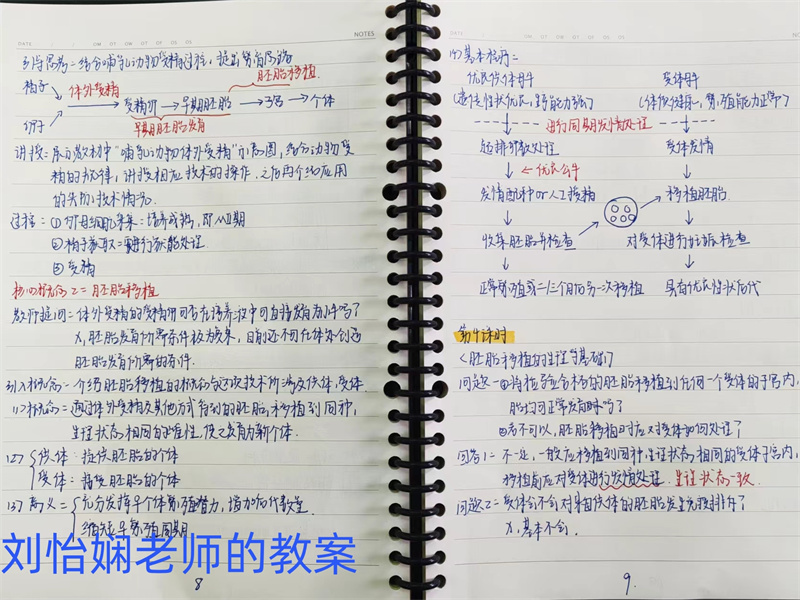 DATE
NOTES
引导思考=结合哺乳动物受精过程,提出繁育思路
胚胎移植
精子
体外受精
受精卵→早期胚胎→子宫→个体
卵子
早期胚胎发育
讲授=展示教材中"哺乳动物体外受精"示意图,结合动物受
精的规律,讲授相应技术的操作
的
过程=①卵母细胞采集:培养成熟,即MⅡ期
②精子获取=进行获能处理
③受精
核心概念2=胚胎移植
教师提问=体外受精的受精卵可否在培养液中可直接发育为小牛吗?
X,胚胎发育所需条件极为复杂,目前还不可在体外创造
胚胎发育所需的条件.
引入概念=介绍胚胎移植的概念与这项技术所涉及供体,受体.
(1)概念=通过体外受精及其他方式得到的胚胎,移植到同种,
生理状态相同的雌性,使之发育为新个体.
(2) 供体:提供胚胎的个体
受体:接受胚胎的个体
(3)意义= 充分发挥早个体繁殖潜力,增加后代数量
缩短早繁殖周期
刘怡娴老师的教案
8
DATE
NOTES
(4)基本程序=
优良供体母牛 受体母牛
(遗传性状优良,生产能力强) (体质健康,繁殖能力正常)
进行同期发情处理
超排卵数处理 受体发情
←优良公牛
发情配种or人工授精 移植胚胎
收集胚胎并检查 对受体进行妊娠检查
正常繁殖或二/三个月后另一次移植 具有优良性状后代
第4课时
<胚胎移植的生理学基础>
问题1=①将桑葚胚合格的胚胎移植到任何一个受体的子宫内,
胎均可正常发育吗?
②若不可以,胚胎移植时应对受体如何处理?
回答1=不一定,一般应移植到同种,生理状态相同的受体子宫内,
移植前应对受体进行发情处理,生理状态一致.
问题2=受体会不会对来自供体的胚胎发生免疫排斥?
X,基本不会.
9.